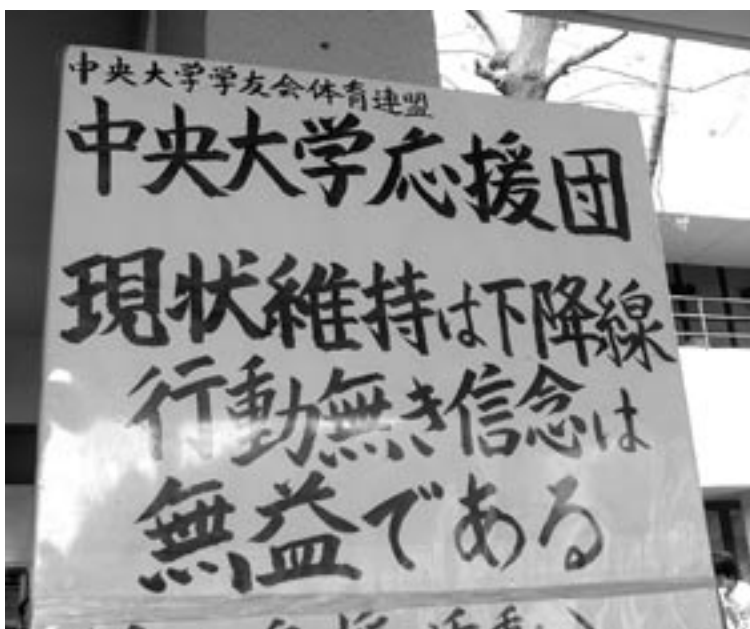 中央大学学友会体育連盟
中央大学応援団
現状維持は下降線
行動無き信念は
無益である